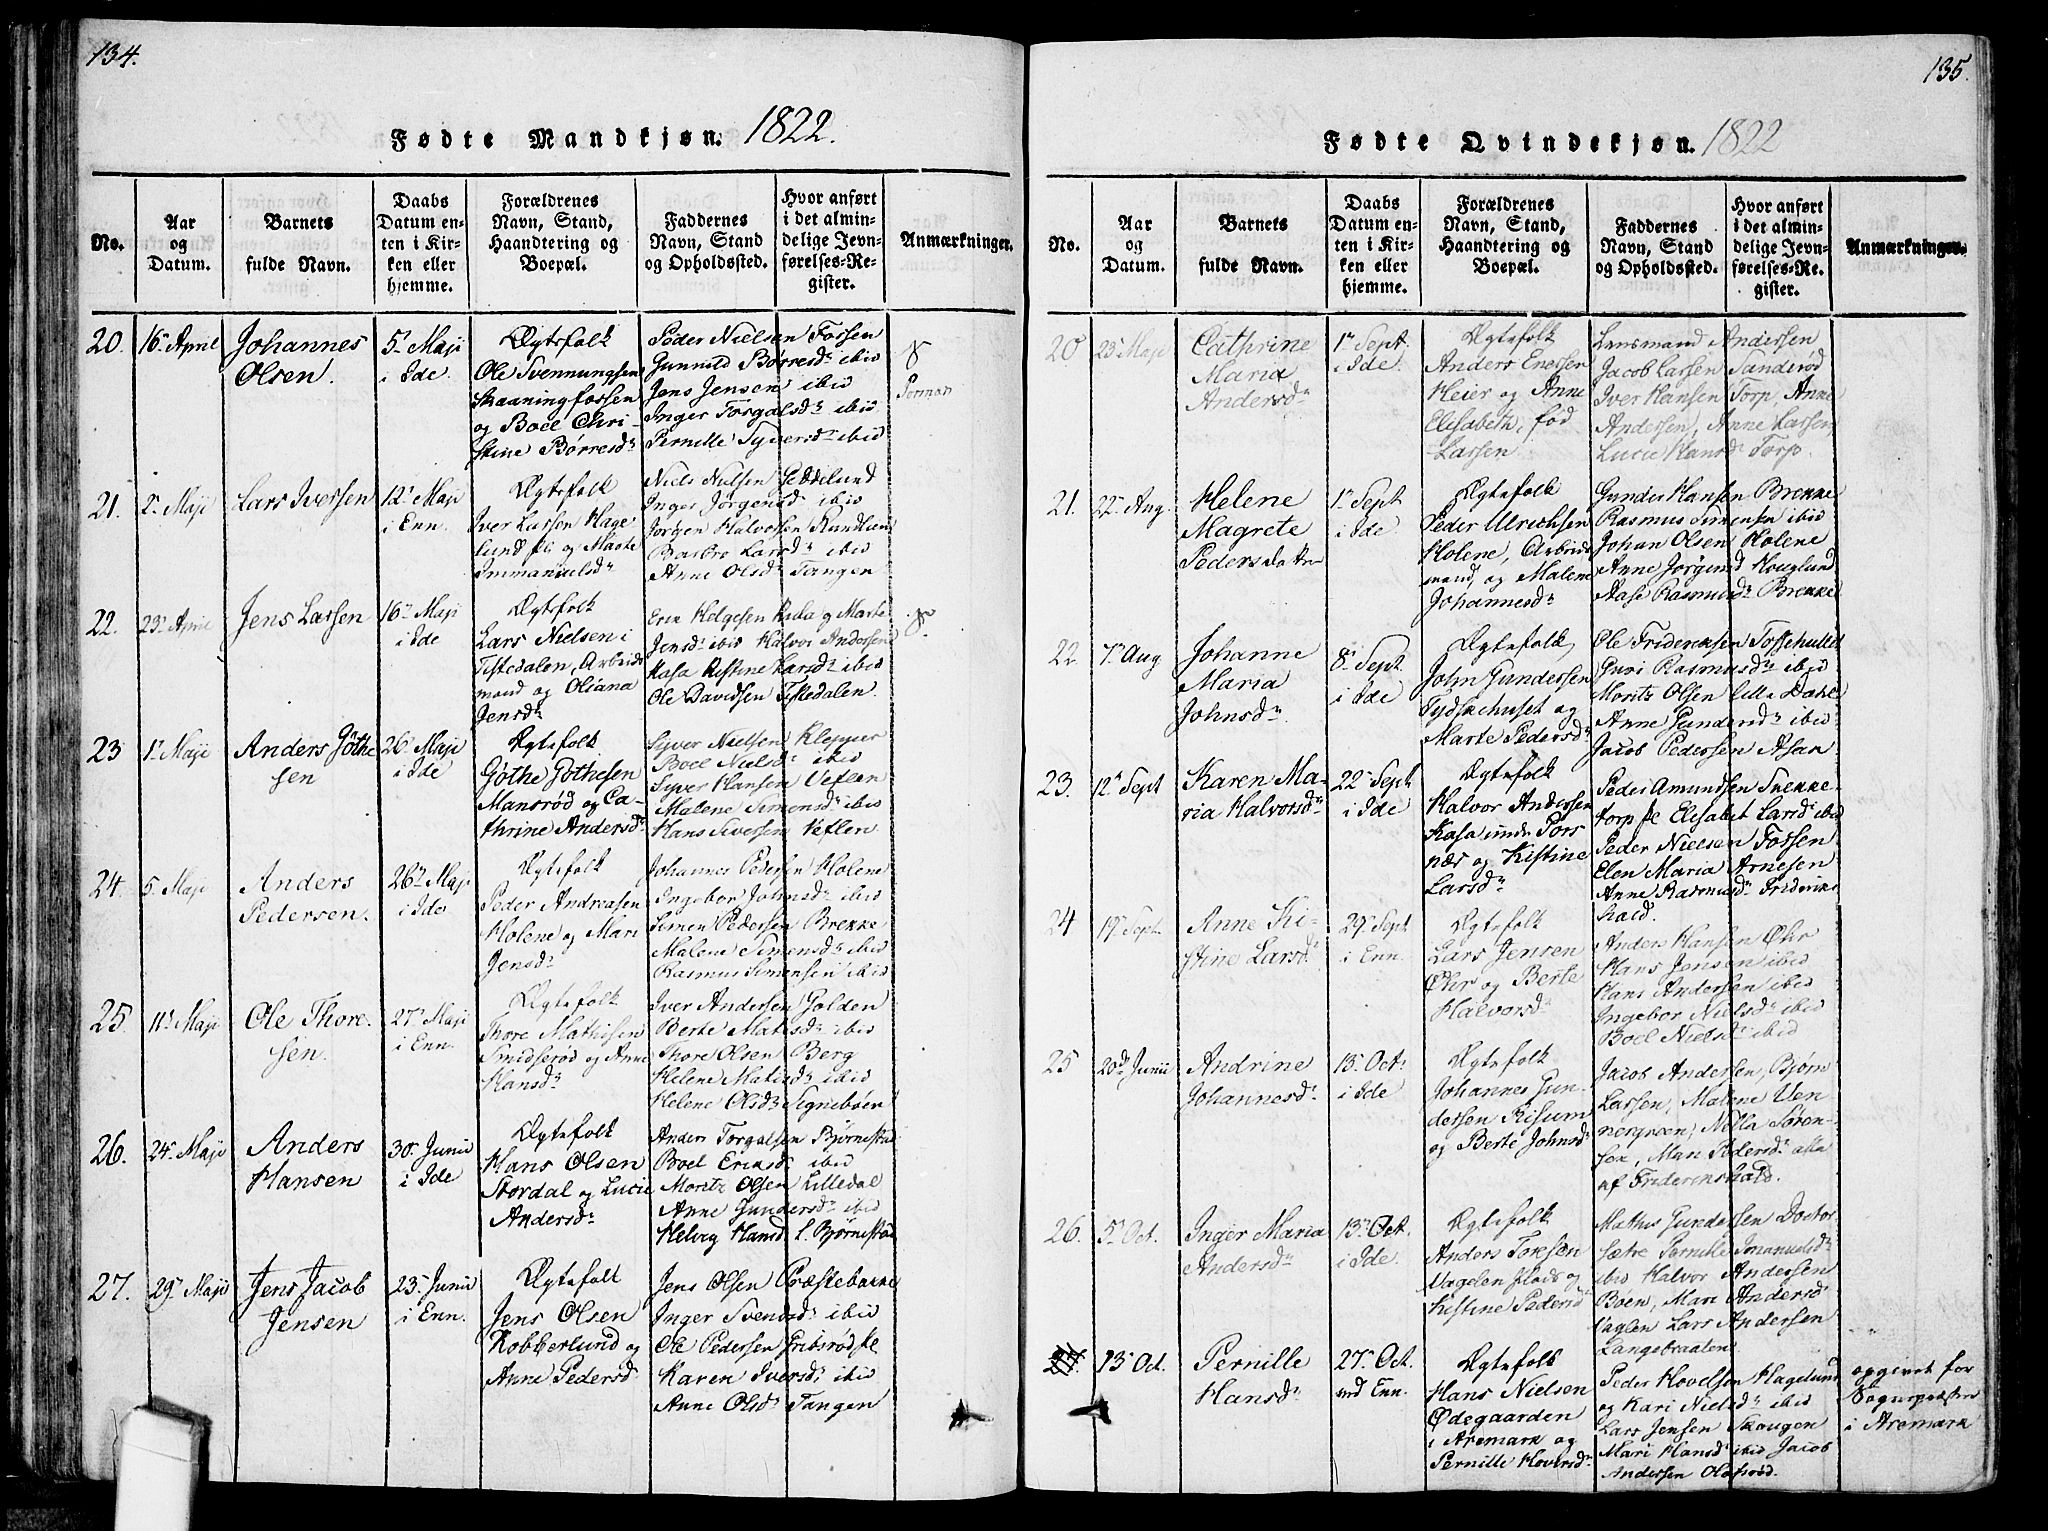 134.
Fødte Mandkjøn. 1822.
No.
Aar
og
Datum.
Barnets
fulde Navn.
Daabs
Datum en-
ten i Kir-
ken eller
hjemme.
Forældrenes
Navn, Stand,
Haandtering og
Boepæl.
Faddernes
Navn, Stand
og Opholdssted.
Hvor anført
i det almin-
delige Jevn-
førelses-Re-
gister.
Anmærkninger.
20.
16 April
Johannes
Olsen.
5 Maji
i Ide.
Ægtefolk
Ole Svennungsen
Skaaningfossen
og Boel Chri-
stine Børresd
Peder Nielsen Fossen
Gunnild Børresd ibid
Jens Jensen ibid
Inger Torgalsd ibid
Pernille Syversd ibid
21.
2 Maji
Lars Iversen
12 Maji
i Enn.
Ægtefolk
Iver Larsen Hage
lund og Marte
Immanuelsd
Niels Nielsen
Inger Jørgensd ibid
Jørgen Halvorsen
Barbro Larsd ibid
Anne Olsd Tangen
22.
23 April
Jens Larsen
16 Maji
i Ide
Ægtefolk
Lars Nielsen i
Tistedalen, Arbeids
mand og Oliana
Jensd
Erik Helgesen Kasa og Marte
Jensd ibid Halvor Andersen
Kasa Kistine Larsd ibid
Ole Davidsen Tistedalen.
23
1 Maji
Anders Gøthe
sen
26 Maji
i Ide
Ægtefolk
Gøthe Gøthesen
Mansrød og Ca-
thrine Andersd
Syver Nielsen Klepper
Boel Nielsd ibid
Syver Hansen Vetlen
Malene Simensd ibid
Hans Siversen Vetlen
24.
5 Maji
Anders
Pedersen.
26 Maji
i Ide
Ægtefolk
Peder Andreasen
Holene og Mari
Jensd
Johannes Pedersen Holene
Ingebor Johnsd ibid
Simen Pedersen Brekke
Malene Simensd ibid
Rasmus Simensen ibid
25.
11 Maji
Ole Thore-
sen.
27 Maji
i Enn.
Ægtefolk
Thore Mathisen
Smidserød og Anne
Hansd
Iver Andersen Golden
Berte Matisd ibid
Thore Olsen Berg
Helene Matisd ibid
Helene Olsd Signebøen
26.
24 Maji
Anders
Hansen
30 Junii
i Ide
Ægtefolk
Hans Olsen
Stordal og Lucie
Andersd
Anders Torgalsen Bjørnestad
Boel Eriksd ibid
Moritz Olsen Lilledal
Anne Gundersd ibid
Helvig Hansd l. Bjørnestad
27.
29 Maji
Jens Jacob
Jensen
23 Junii
i Enn.
Ægtefolk
Jens Olsen
Kobberlund og
Anne Pedersd
Jens Olsen Præstebakke
Inger Svendsd ibid
Ole Pedersen Gribsrød
Karen Iversd ibid
Anne Olsd Tangen
135.
Fødte Qvindekjøn. 1822
No.
Aar
og
Datum.
Barnets
fulde Navn.
Daabs
Datum en-
ten i Kir-
ken eller
hjemme.
Forældrenes
Navn, Stand,
Haandtering og
Boepæl.
Faddernes
Navn, Stand
og Opholdssted.
Hvor anført
i det almin-
delige Jevn-
førelses-Re-
gister.
Anmærkninger.
20
23 Maji
Cathrine
Maria
Andersd
1 Sept.
i Ide.
Ægtefolk
Anders Enersen
Heier og Anne
Elisabeth, fød
Larsen
Lensmand Andersen
Jacob Larsen Sanderød
Iver Hansen Torp, Anne
Andersen, Anne Larsen,
Lucie Hansd Torp.
21.
22 Aug.
Helene
Magrete
Pedersdatter
1 Sept
i Ide
Ægtefolk
Peder Ulrichsen
Holene, Arbeids
mand, og Malene
Johannesd
Gunder Hansen Brekke
Rasmus Simensen ibid
Johan Olsen Holene
Anne Jørgensd Houglund
Aase Rasmusd Brekke
22.
7 Aug
Johanne
Maria
Johnsd
8 Sept
i Ide
Ægtefolk
John Gundersen
Tydskehuset og
Marte Pedersd
Ole Frideriksen Tossehullet
Guri Rasmusd ibid
Moritz Olsen lille Dahle
Anne Gundersd ibid
Jacob Pedersen Asan
23.
12 Sept
Karen Ma-
ria Halvorsd
22 Sept
i Ide
Ægtefolk
Halvor Andersen
Kasa under Pors
næs og Kistine
Larsd
Peder Amundsen Snekke-
torp Elisabet Larsd ibid
Peder Nielsen Fossen
Elen Maria Arnesen
Anne Rasmusd Frideriks
hald.
24
19 Sept
Anne Ki-
stine Larsd
29 Sept
i Enn.
Ægtefolk
Lars Jensen
Øhr og Berte
Halvorsd
Anders Hansen Øhr
Hans Jensen ibid
Hans Andersen ibid
Ingebor Nielsd ibid
Boel Nielsd ibid
25
20 Junii
Andrine
Johannesd
13 Oct
i Ide
Ægtefolk
Johannes Gun-
dersen Risum
og Berte Johnsd
Jacob Andersen, Bjørn
Larsen, Malene Ven
nergreen, Nella Søren-
sen, Mari Pedersd alle
af Frideriks hald.
26.
5 Oct.
Inger Maria
Andersd
13 Oct.
i Ide.
Ægtefolk
Anders Toresen
Vagelen og
Kistine Pedersd
Mathis Gundersen Doctor-
sætre Pernille Imanuelsd
ibid Halvor Andersen
Bøen, Mari Andersd
Vaglen Lars Andersen
Langebraaten.
27.
13 Oct.
Pernille
Hansd
27 Oct.
ved Enn.
Ægtefolk
Hans Nielsen
Ødegaarden
i Aremark og
Pernille Hovelsd
Peder Hovelsen Hagelund
og Kari Nielsd ibid
Lars Jensen Skougen
Mari Hansd ibid Jacob
Andersen
opgivet for
Sognepræsten
i Aremark